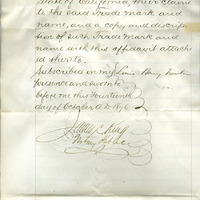 State of California their claim
to the said Trade Mark and
name, and a copy and descrip
tion of such Trade Mark and
name with this affidavit attach
ed thereto.
Subscribed in my
presence and sworn to
before me this Fourteenth
day of October A.D. 1876
Notary Public